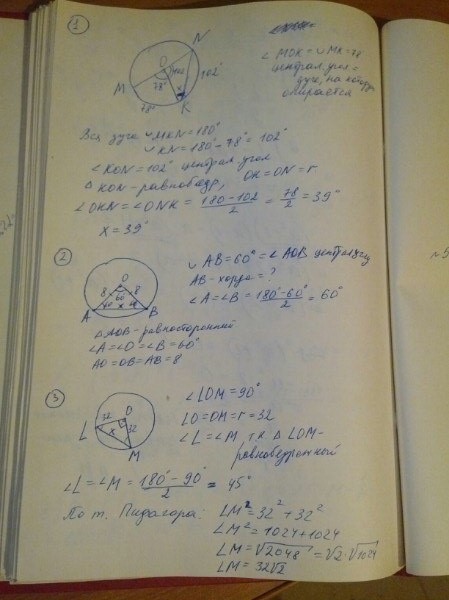 ①
N
O
102°
102°
78°
x
M
78°
K
∠ MOK = ∪ MK = 78
централ. угол =
дуге, на которую
опирается
Вся дуга ∪ MKN = 180°
∪ KN = 180° - 78° = 102°
∠ KON = 102° централ угол
△ KON - равнобедр, OK = ON = r
∠ OKN = ∠ ONK = (180 - 102)/2 = 78/2 = 39°
x = 39°
②
O
8 60° 8
60 x 60
A B
∪ AB = 60° = ∠ AOB центр. угол
AB - хорда = ?
∠A = ∠B = (180° - 60°)/2 = 60°
△ AOB - равносторонний
∠A = ∠O = ∠B = 60°
AO = OB = AB = 8
③
32 O
L x 32
M
∠ LOM = 90°
LO = OM = r = 32
∠L = ∠M т.к △ LOM-
равнобедренной
∠L = ∠M = (180° - 90°)/2 = 45°
По т. Пифагора: LM² = 32² + 32²
LM² = 1024 + 1024
LM = √2048 = √2 · √1024
LM = 32√2
№5